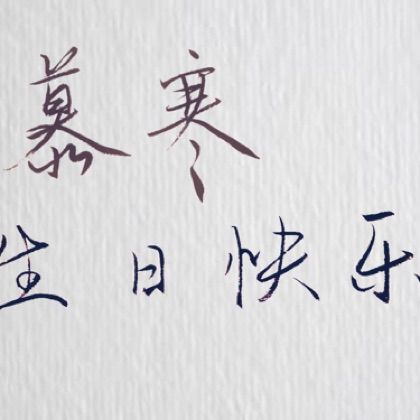 慕寒
生日快乐